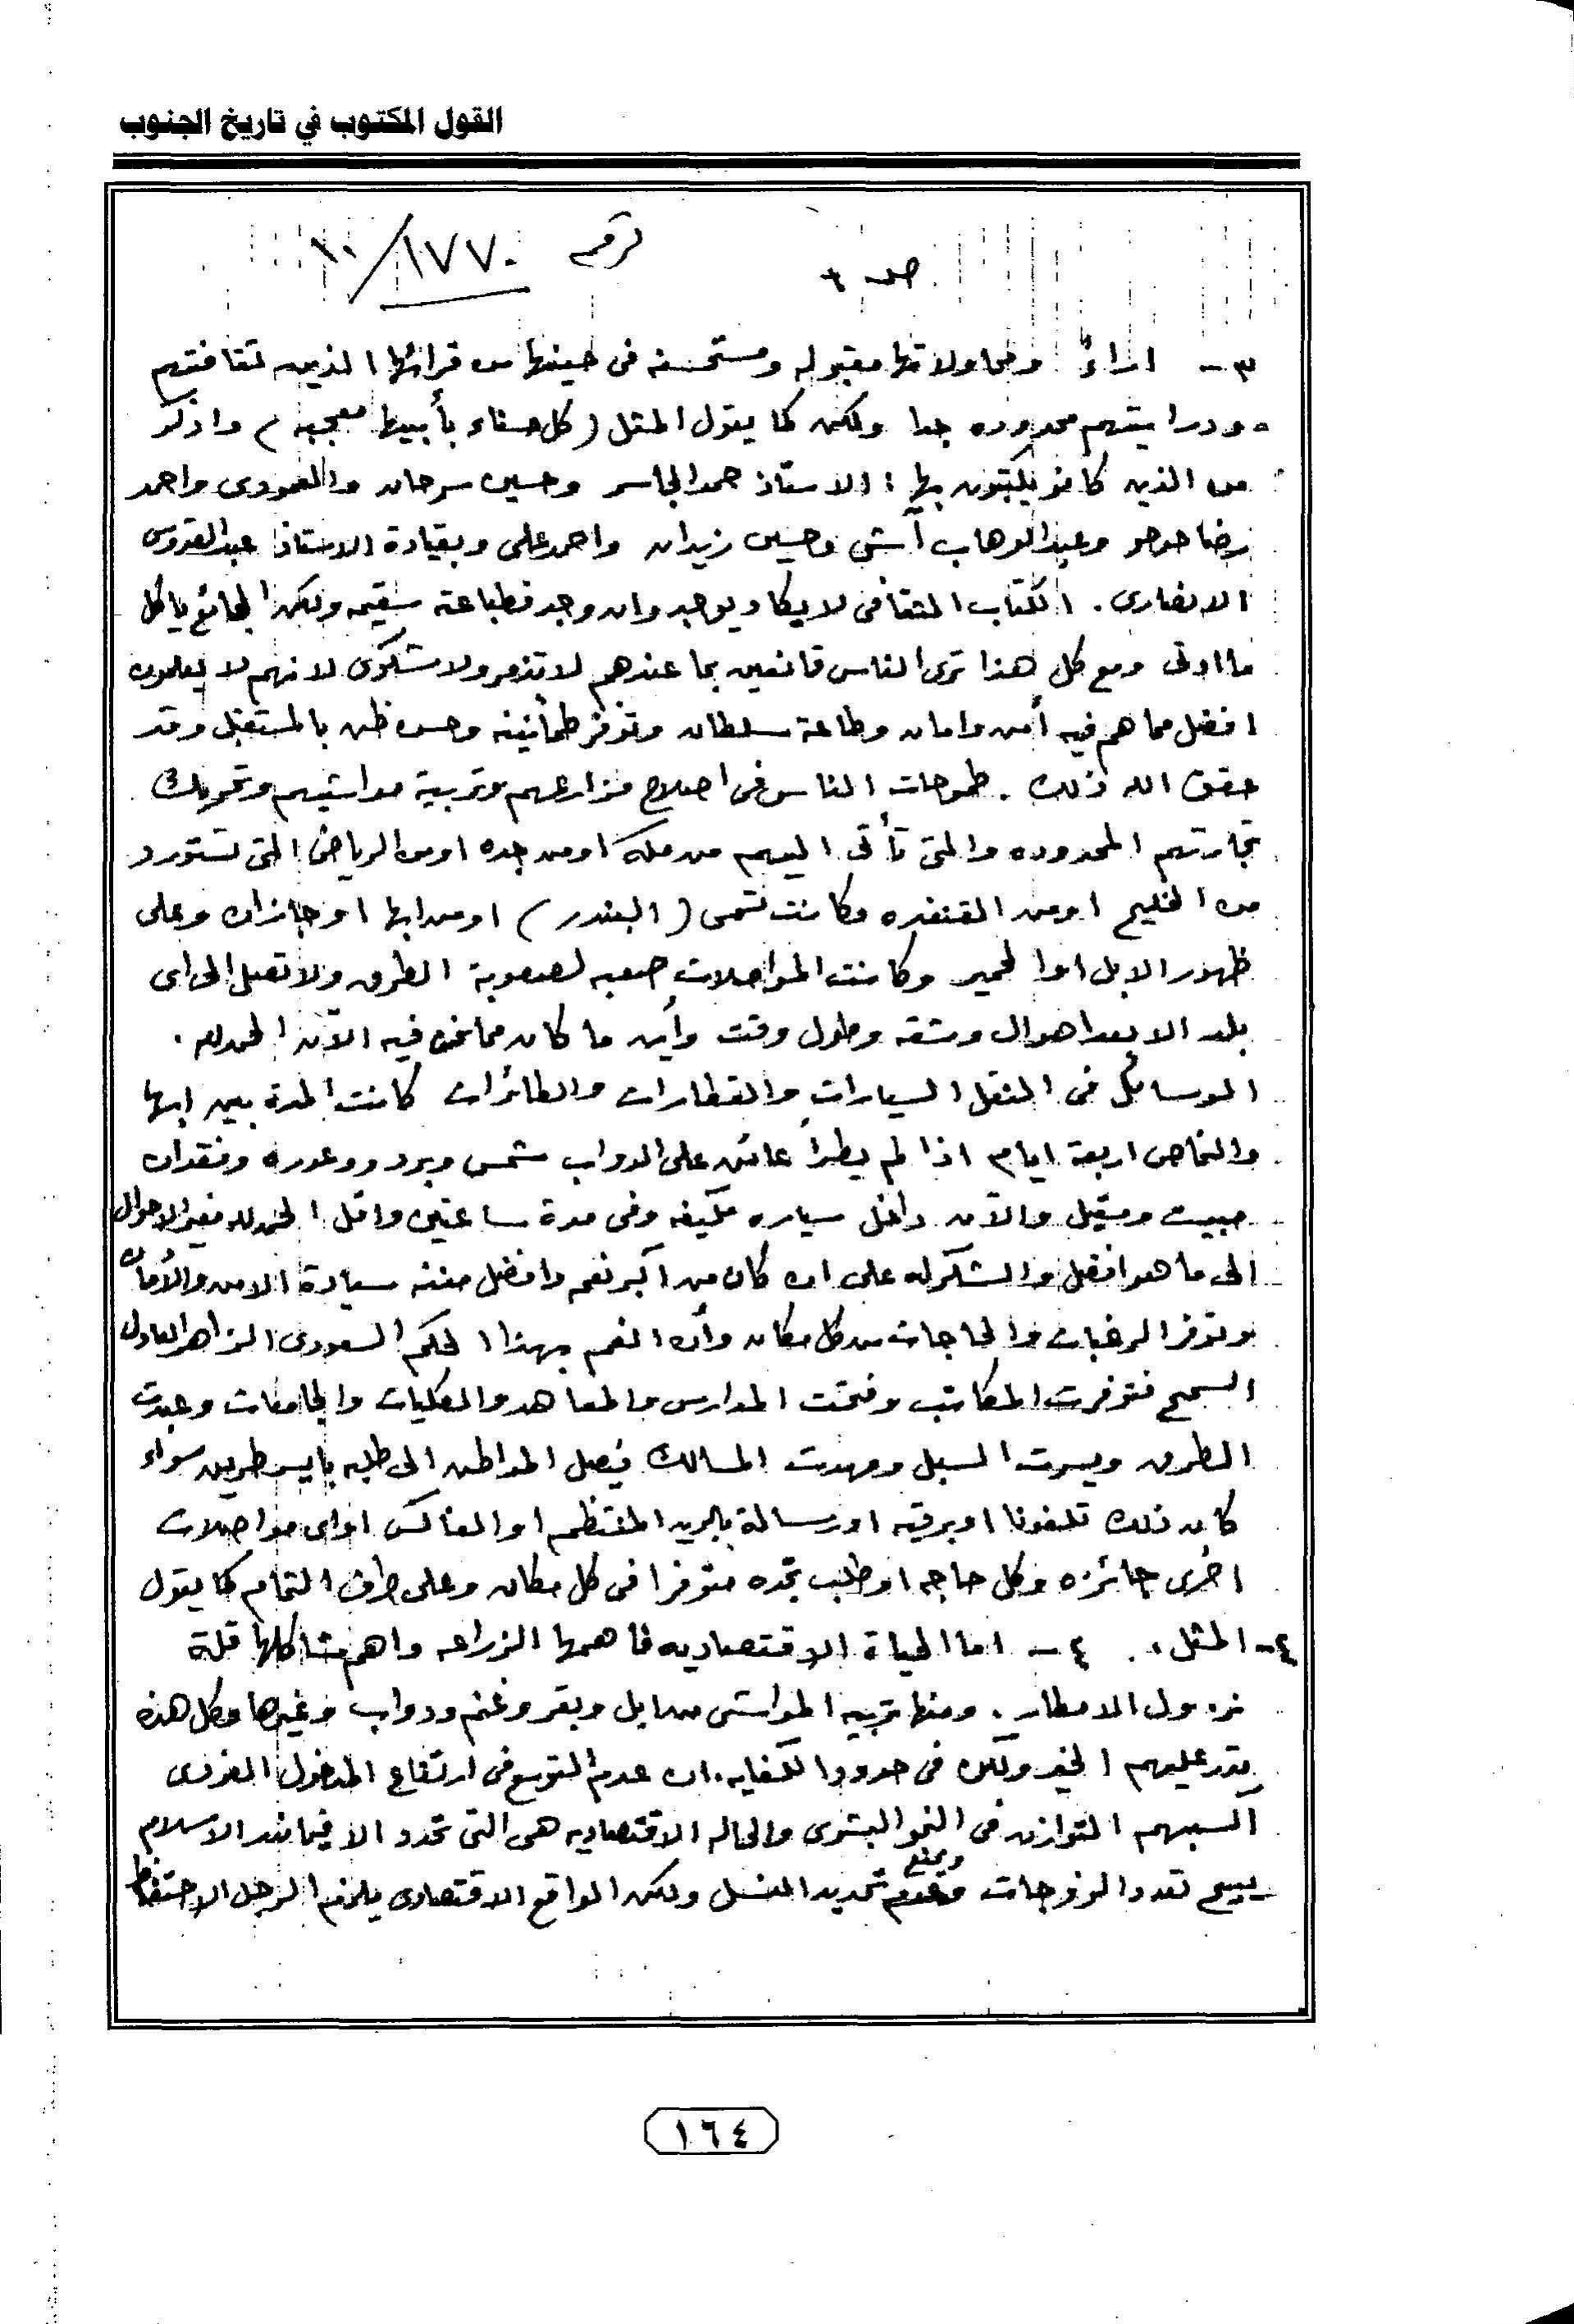 القول المكتوب في تاريخ الجنوب
رقم ١٧٧٠/١٠
ص
٣- اراءً ومحاولاتها مقبوله ومستحسنه فى حينها من قرائها الذين ثقافتهم
ودرايتهم محدوده جدا ولكن كما يقول المثل (كل حسناء بأبيها معجبه) واذكر
من الذين كانو يكتبون بها: الاستاذ حمد الجاسر وحسين سرحان والعمودى واحمد
رضا حوحو وعبد الوهاب آشى وحسين زيدان واحمد على وبقيادة الاستاذ عبد القدوس
الانصارى. الكتاب الثقافى لا يكاد يوجد وان وجد فطباعته سقيمه ولكن الجائع ياكل
ما اوتى ومع كل هذا ترى الناس قانعين بما عندهم لا تذمر ولا شكوى لانهم لا يعلمون
افضل مما هم فيه أمن وامان وطاعة سلطان وتوفر طمأنينه وحسن ظن بالمستقبل وقد
حقق الله ذلك. طموحات الناس فى اصلاح مزارعهم وتربية مواشيهم وتحريك
تجارتهم المحدوده والتى تأتى اليهم من مكه او من جده او من الرياض التى تستورد
من الخليج او من القنفذه وكانت تسمى (البندر) او من ابها او جازان وعلى
ظهور الابل او الحمير وكانت المواصلات صعبه لصعوبة الطرق ولا تصل الى اى
بلد الا بعد اهوال ومشقه وطول وقت وأين ما كان مما نحن فيه الآن الحمد لله.
الوسائل فى التنقل السيارات والقطارات والطائرات كانت المدة بين ابها
والنماص اربعة ايام اذا لم يطرأ عائق على الدواب شمس وبرد ووعوره وفقدان
مبيت ومقيل والآن داخل سياره مكيفه وفى مدة ساعتين واقل الحمد لله مغير الاحوال
الى ما هو افضل والشكر له على ان كان من اكبر نعم وافضل مننه سيادة الامن والأمان
وتوفر الرغبات والحاجات من كل مكان وأن انعم بهذا الحكم السعودى الزاهر العادل
السمح فتوفرت المكاتب وفتحت المدارس والمعاهد والكليات والجامعات وعبدت
الطرق ويسرت السبل ومهدت المسالك فيصل المواطن الى طلبه بايسر طريق سواء
كان ذلك تلفونا او برقيه او رسالة بالبريد المنتظم او الفاكس او اى مواصلات
اخرى جائزه وكل حاجه او طلب تجده متوفرا فى كل مكان وعلى طرف الثمام كما يقول
٤- المثل. ٤- اما الحياة الاقتصاديه فاهمها الزراعه واهم مشاكلها قلة
نزول الامطار. ومنها تربيه المواشى من ابل وبقر وغنم ودواب وغيرها وكل هذه
يدر عليهم الخير ولكن فى حدود الكفايه. ان عدم التوسع فى ارتفاع المدخول الفردى
التوازن فى النمو البشرى والحاله الاقتصاديه هى التى تحدد الا فيما ندر الاسلام
يبيح تعدد الزوجات ويمنع تحديد النسل ولكن الواقع الاقتصادى يلزم الرجل الاحتفاظ
١٦٤